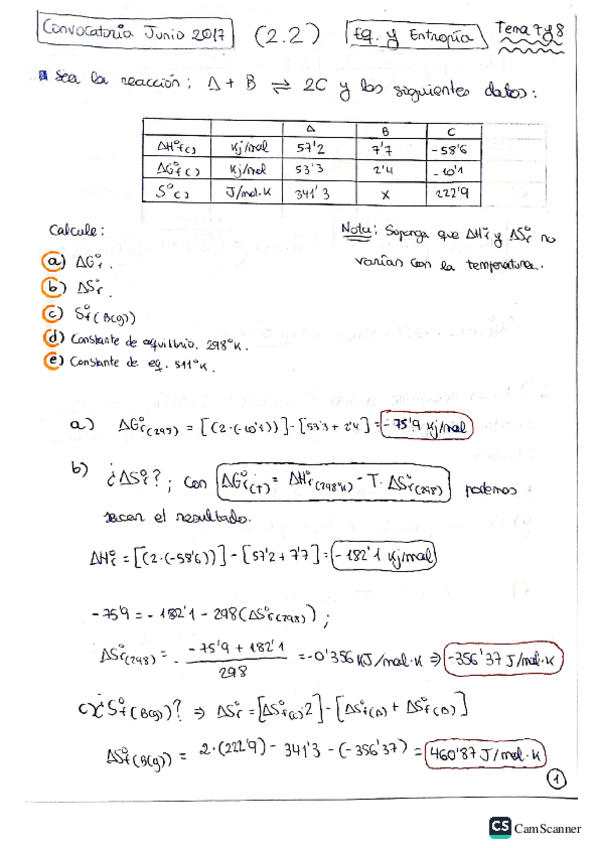 Convocatoria Junio 2017 (2.2) Eq. y Entropía Tema 7 y 8
Sea la reacción: A + B ⇌ 2C y los siguientes datos:
A B C
ΔH°f( ) Kj/mol 57'2 7'7 -58'6
ΔG°f( ) Kj/mol 53'3 2'4 -10'1
S°( ) J/mol·K 341'3 X 222'9
Calcule:
Nota: Suponga que ΔH°r y ΔS°r no
varían con la temperatura.
a) ΔG°r.
b) ΔS°r.
c) S°f(B(g))
d) Constante de equilibrio. 298°K.
e) Constante de eq. 511°K.
a) ΔG°r(297) = [(2·(-10'1))]-[53'3+2'4] = -75'9 Kj/mol
b) ¿ΔS°r?; con ΔG°r(T) = ΔH°r(298°K) - T·ΔS°r(298) podemos
sacar el resultado.
ΔH°r = [(2·(-58'6))]-[57'2+7'7] = -182'1 Kj/mol
-75'9 = -182'1 - 298(ΔS°r(298));
ΔS°r(298) = - -75'9 + 182'1 / 298 = -0'356 KJ/mol·K ⇒ -356'37 J/mol·K
c) ¿S°f(B(g))? ⇒ ΔS°r = [ΔS°f(c)2]-[ΔS°f(A) + ΔS°f(B)]
ΔS°f(B(g)) = 2·(222'9) - 341'3 - (-356'37) = 460'87 J/mol·K
1
CS CamScanner